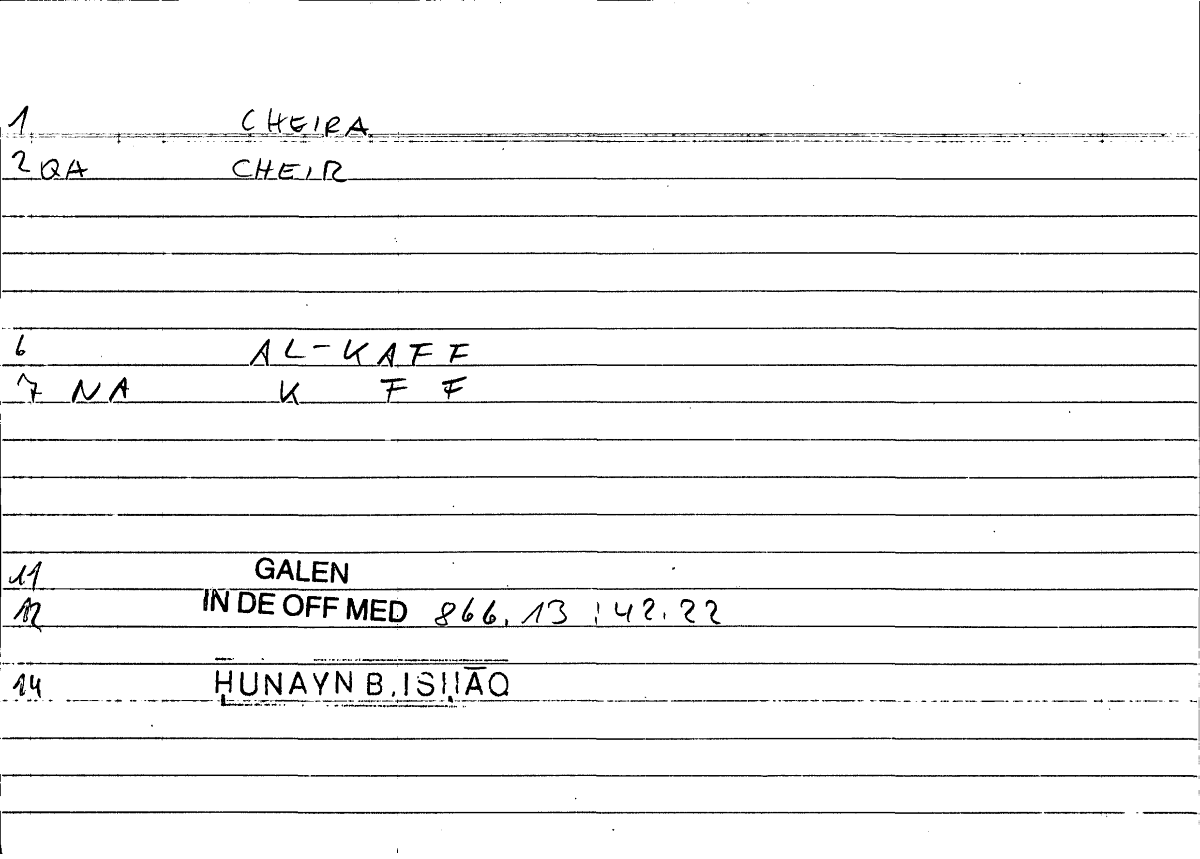 1 CHEIRA
2 QA CHEIR
6 AL-KAFF
7 NA K F F
11 GALEN
12 IN DE OFF MED 866.13 : 42.22
14 ḤUNAYN B. ISḤĀQ